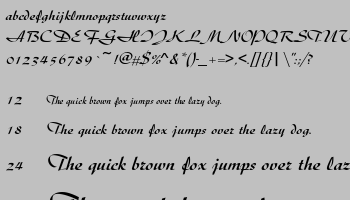 abcdefghijklmnopqrstuvwxyz
ABCDEFGHIJKLMNOPQRSTUV
0123456789`~!@#$%^&*()-_+=>,<.[]{}|\":;/?
12 The quick brown fox jumps over the lazy dog.
18 The quick brown fox jumps over the lazy dog.
24 The quick brown fox jumps over the laz